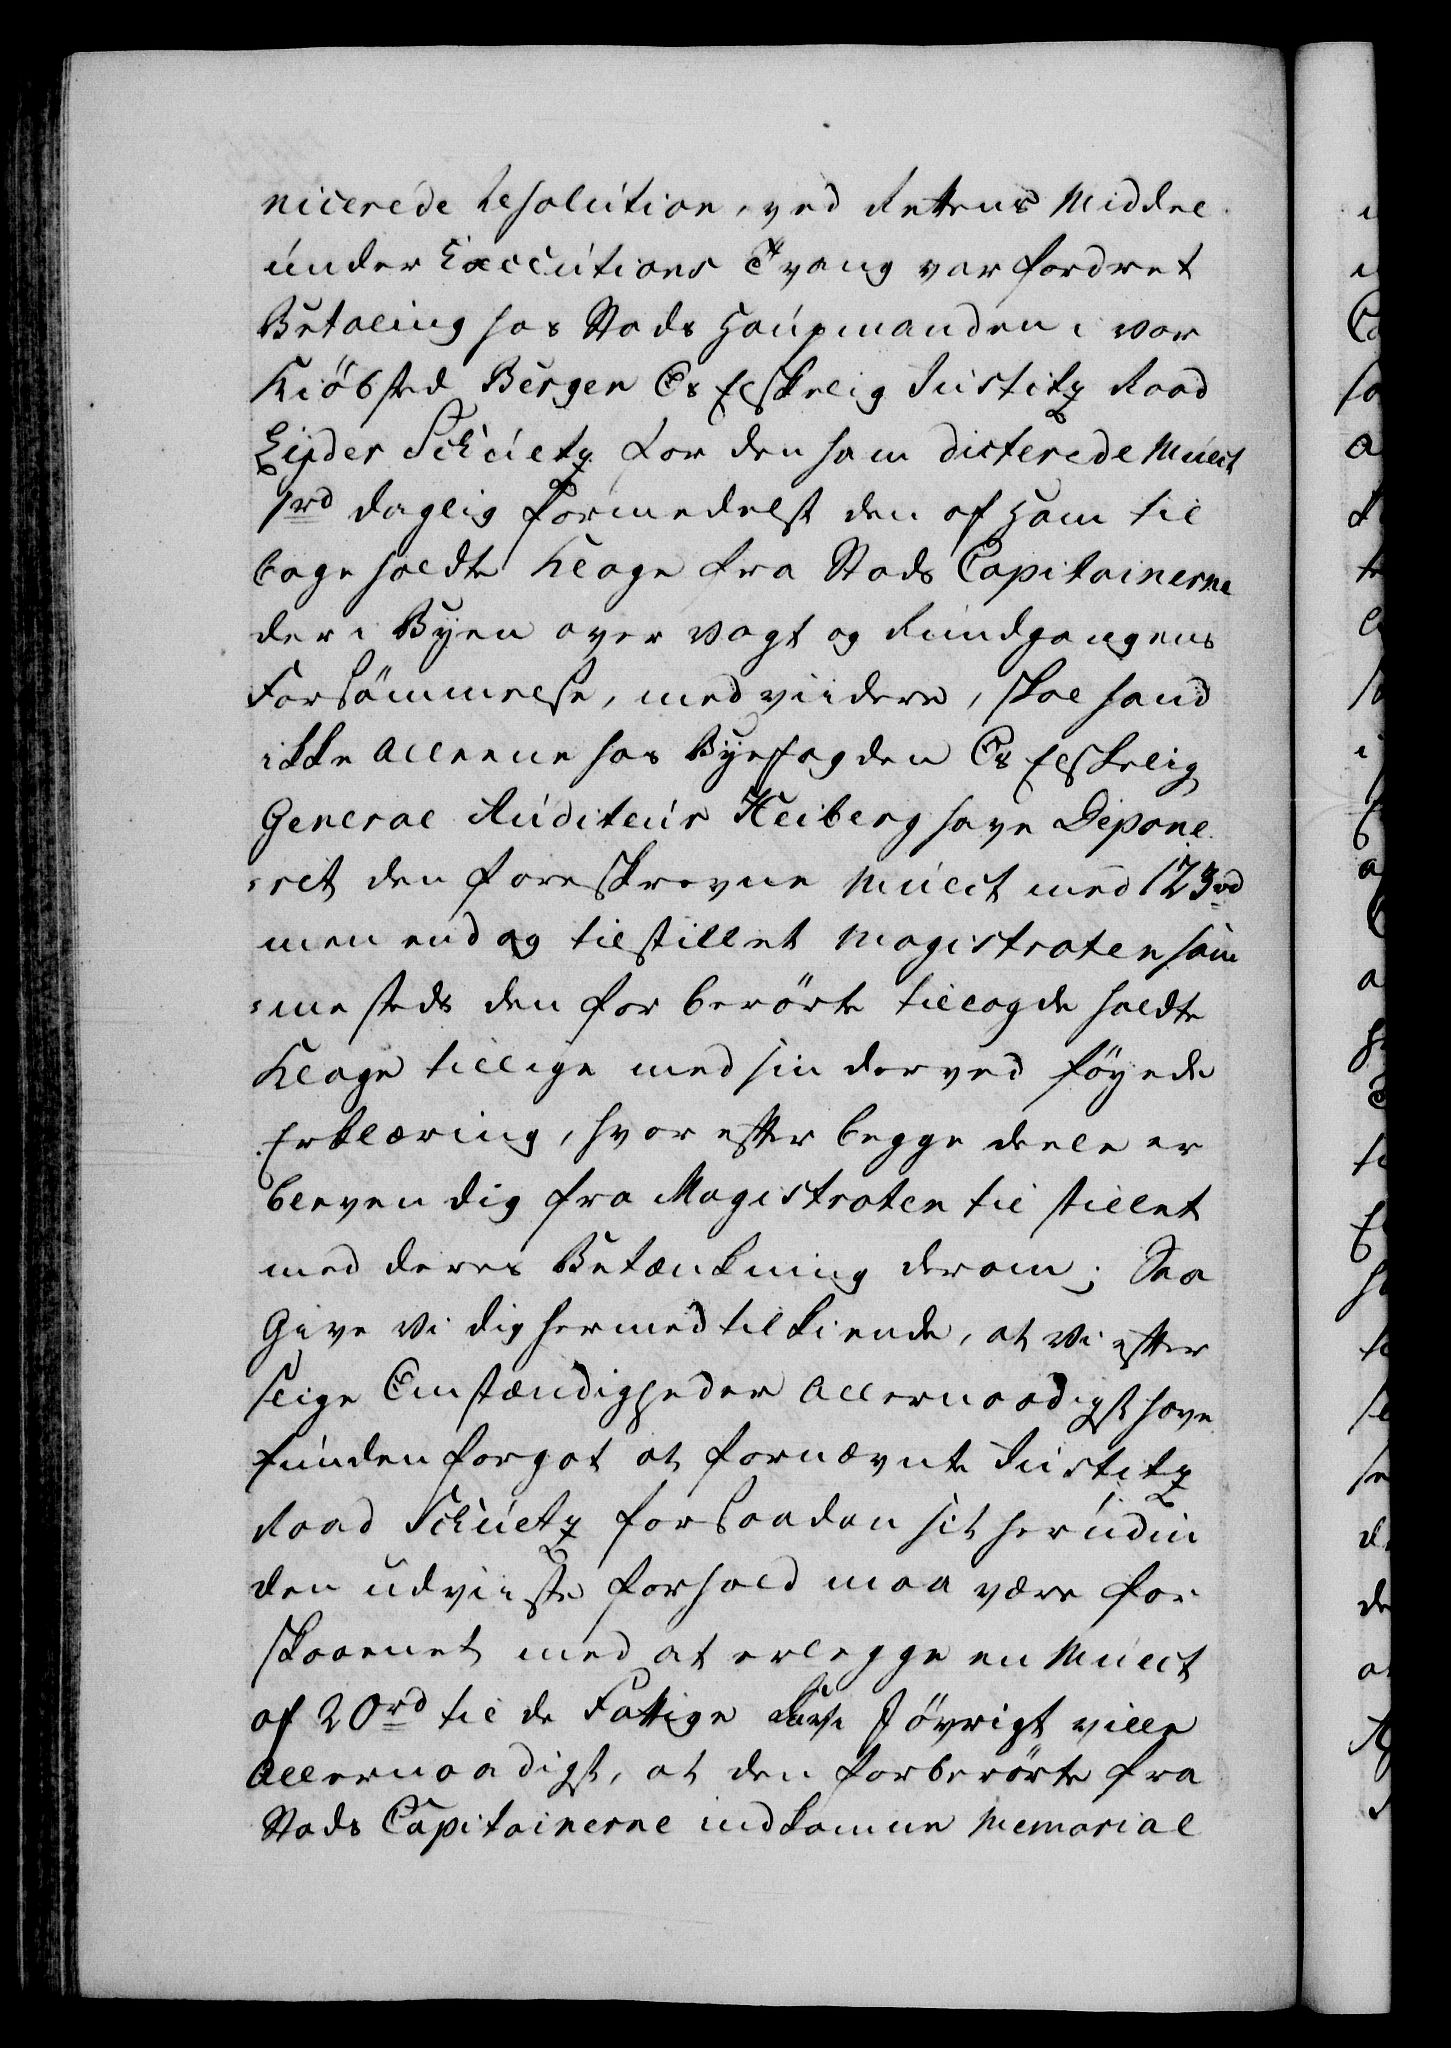 nicerede Resolution, ved Rettens Middel
under Executions Tvang var fordret
Betaling hos Stads Haupmanden i vor
Kiöbsted Bergen Os Elskelig Justitz Raad
Eijder Schüetz for den ham dicterede Mulct
1rd daglig formedelst den af Ham til
bage holdte Klage fra Stads Capitainerne
der i Byen over Vagt og Rundgangens
Forsömmelse, med viidere, skal hand
ikke alleene hos Byefogden Os Elskelig
General Auditeur Heiberg have Depone
-ret den foreskrevne Mulct med 123rd
men end og tilstillet Magistraten sam
-me steds den for berörte tilbage holdte
Klage tillige med sin derved föyede
Erklæring, hvor efter begge deele er
bleven dig fra Magistraten til stillet
med deres Betænkning derom; Saa
Give Vi dig hermed tilkiende, at Vi efter
slige Omstændigheder allernaadigst have
funden forgot at fornævnte Justitz
Raad Schüetz for saadan sit herudin
den udviiste forhold maa være for
skaanet med at erlegge en Mulct
af 20rd til de Fattige I övrigt ville
allernaadigst, at den forberörte fra
Stads Capitainerne indkomne Memorial